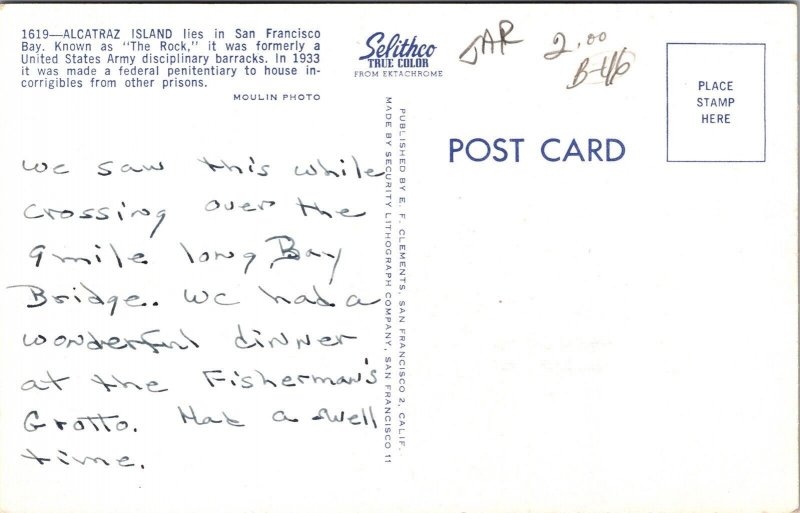 1619—ALCATRAZ ISLAND lies in San Francisco
Bay. Known as "The Rock," it was formerly a
United States Army disciplinary barracks. In 1933
it was made a federal penitentiary to house in-
corrigibles from other prisons.
MOULIN PHOTO
Selithco
TRUE COLOR
FROM EKTACHROME
JAR 2.00
B-46
PLACE
STAMP
HERE
POST CARD
we saw this while
crossing over the
9 mile long Bay
Bridge.. We had a
wonderful dinner
at the Fisherman's
Grotto. Had a swell
time.
PUBLISHED BY E. F. CLEMENTS, SAN FRANCISCO 2, CALIF.
MADE BY SECURITY LITHOGRAPH COMPANY, SAN FRANCISCO 11